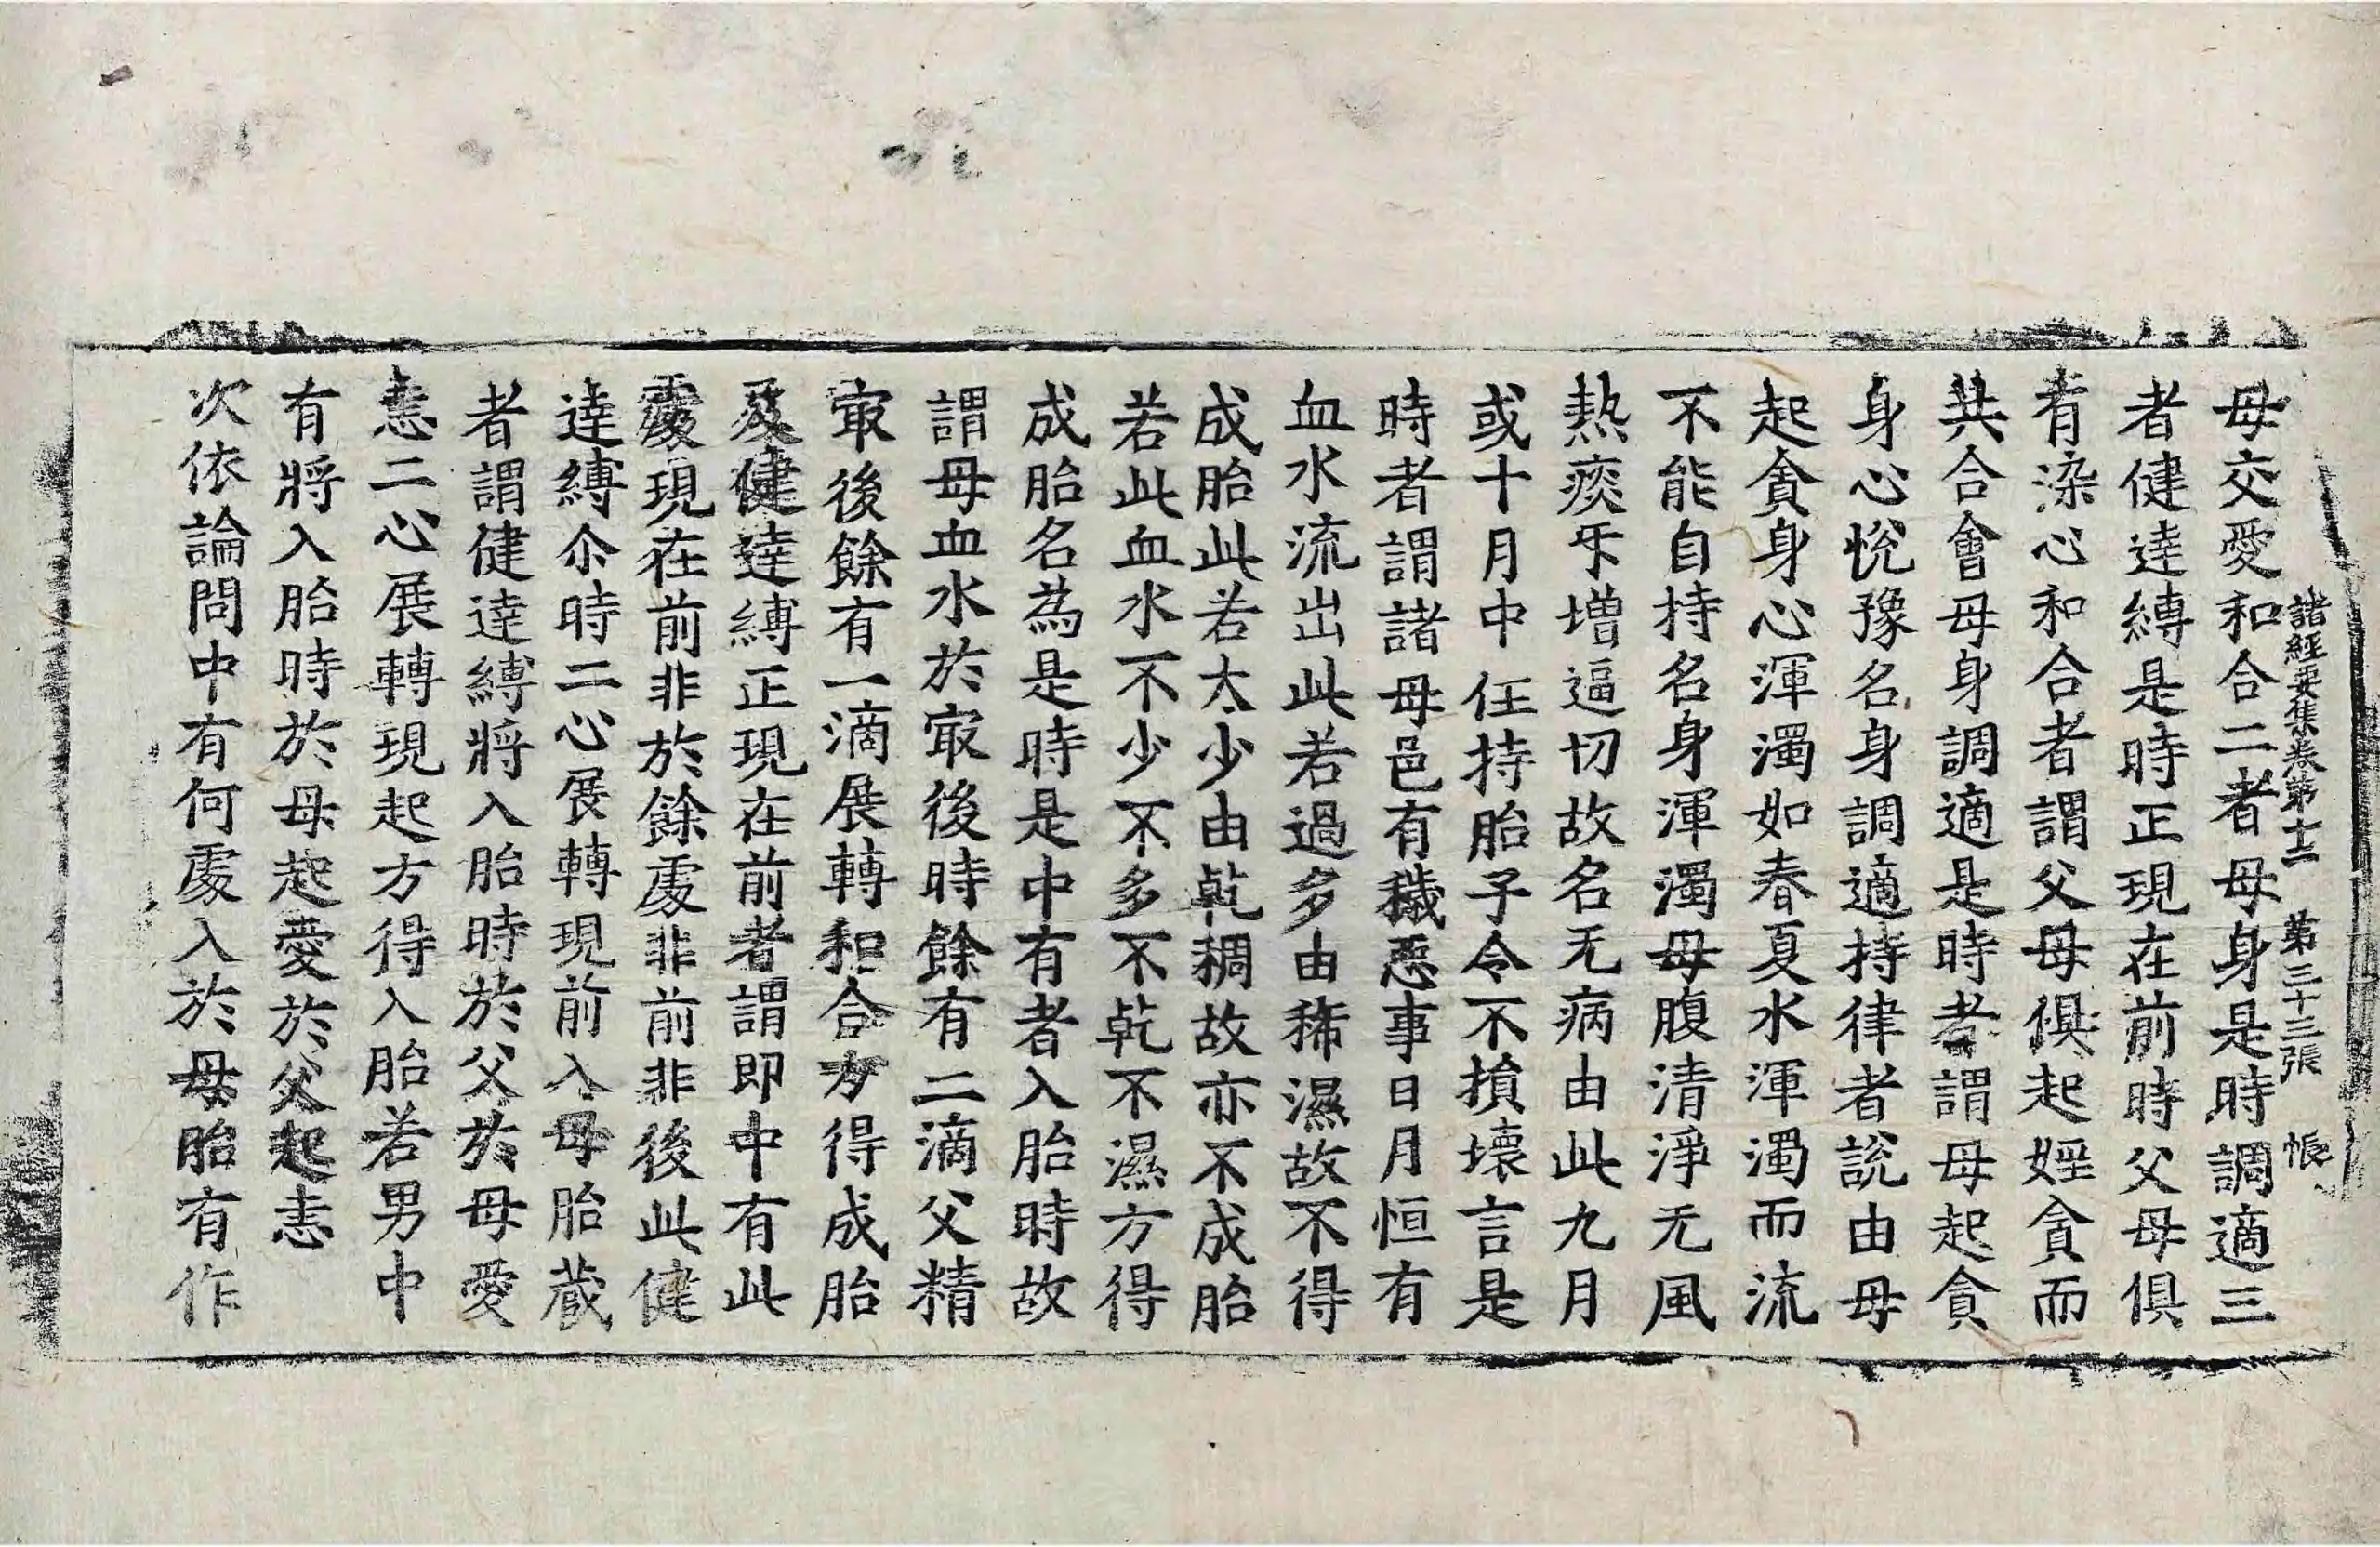 諸經要集卷第十二 第三十三張 帳
母交愛和合二者母身是時調適三
者健達縛是時正現在前時父母俱
有染心和合者謂父母俱起婬貪而
共合會母身調適是時者謂母起貪
身心悅豫名身調適持律者說由母
起貪身心渾濁如春夏水渾濁而流
不能自持名身渾濁母腹清淨无風
熱痰㸦增逼切故名无病由此九月
或十月中任持胎子令不損壞言是
時者謂諸母邑有穢惡事日月恒有
血水流出此若過多由稀濕故不得
成胎此若太少由乾稠故亦不成胎
若此血水不少不多不乾不濕方得
成胎名為是時是中有者入胎時故
謂母血水於㝡後時餘有二滴父精
㝡後餘有一滴展轉和合方得成胎
及健達縛正現在前者謂即中有此
處現在前非於餘處非前非後此健
達縛尒時二心展轉現前入母胎藏
者謂健達縛將入胎時於父於母愛
恚二心展轉現起方得入胎若男中
有將入胎時於母起愛於父起恚
次依論問中有何處入於母胎有作